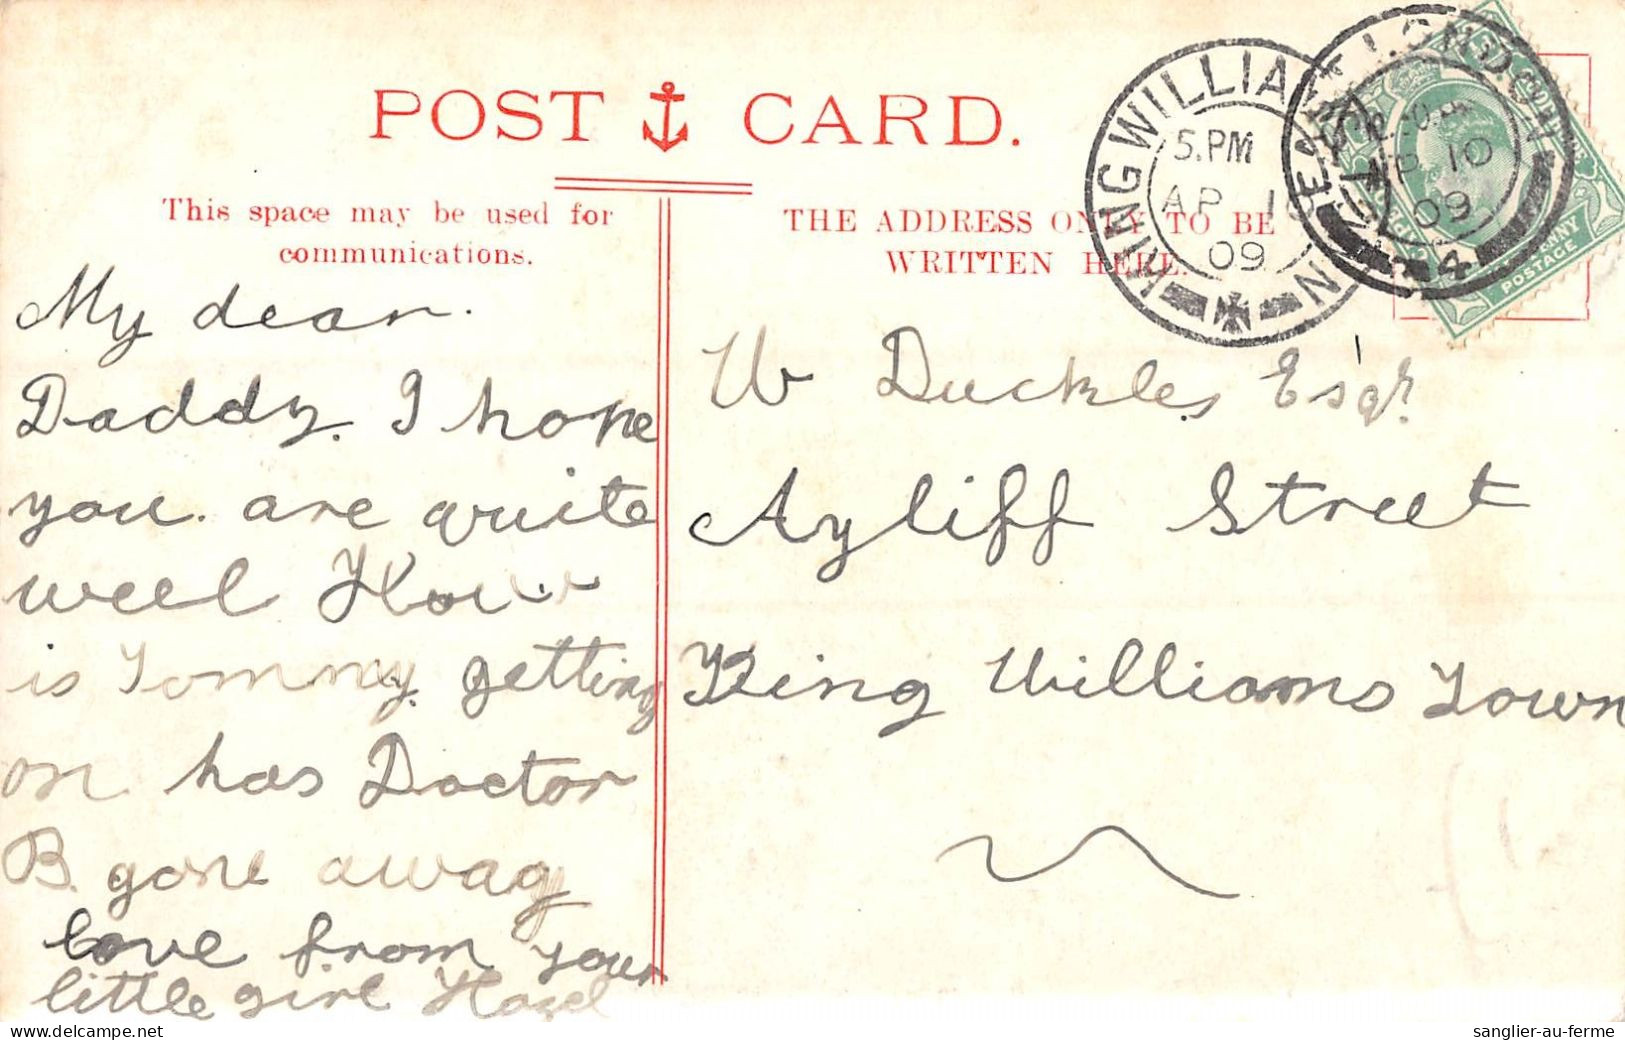 POST CARD.
This space may be used for
communications.
THE ADDRESS ONLY TO BE
WRITTEN HERE.
KING WILLIAM'S TOWN
5.PM
AP 10
09
EAST LONDON
AP 10
09
4
POSTAGE
My dear.
Daddy. I hope
you. are quite
well How
is Tommy. getting
on has Doctor
B. gone away
love from your
little girl Hazel
W Duckles Esqr.
Ayliff Street
King Williams Town
www.delcampe.net
sanglier-au-ferme